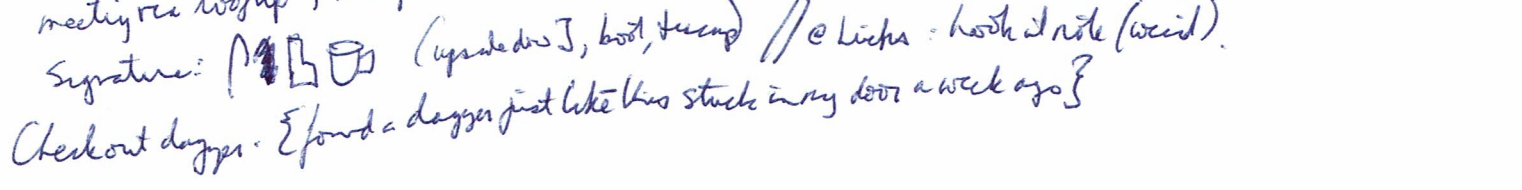 meeting rea
Signature: (upside down J, boot, teacup) // @ Licks : hook it note (weird).
Checkout dagger. {found a dagger just like this stuck in my door a week ago}